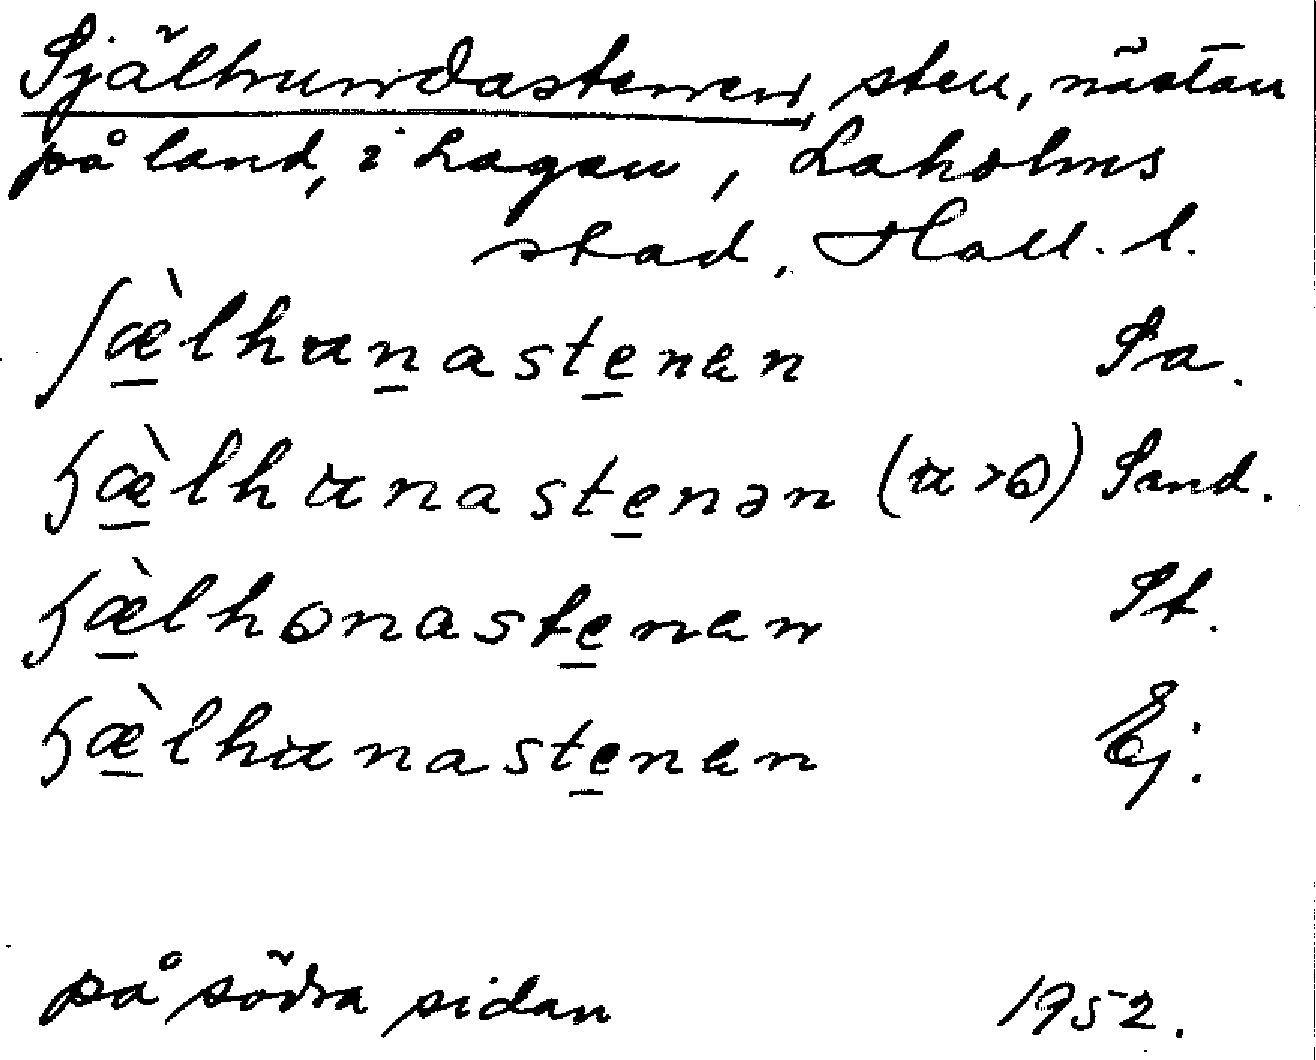 Själhundastenen, sten, nästan
på land, i Lagan, Laholms
stad, Hall. l.
ʃæ̀lhɯnastenen Sa.
ɧæ̀lhɯnastenən (ɯ > ɷ) Smd.
ɧæ̀lhɷnastenen St.
ɧæ̀lhɯnastenen Ej.
på södra sidan 1952.